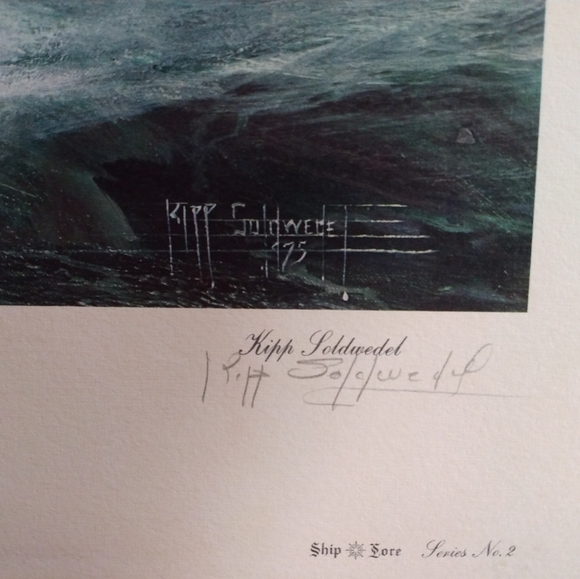 Kipp Soldwedel
'75
Kipp Soldwedel
Kipp Soldwedel
Ship Lore Series No. 2